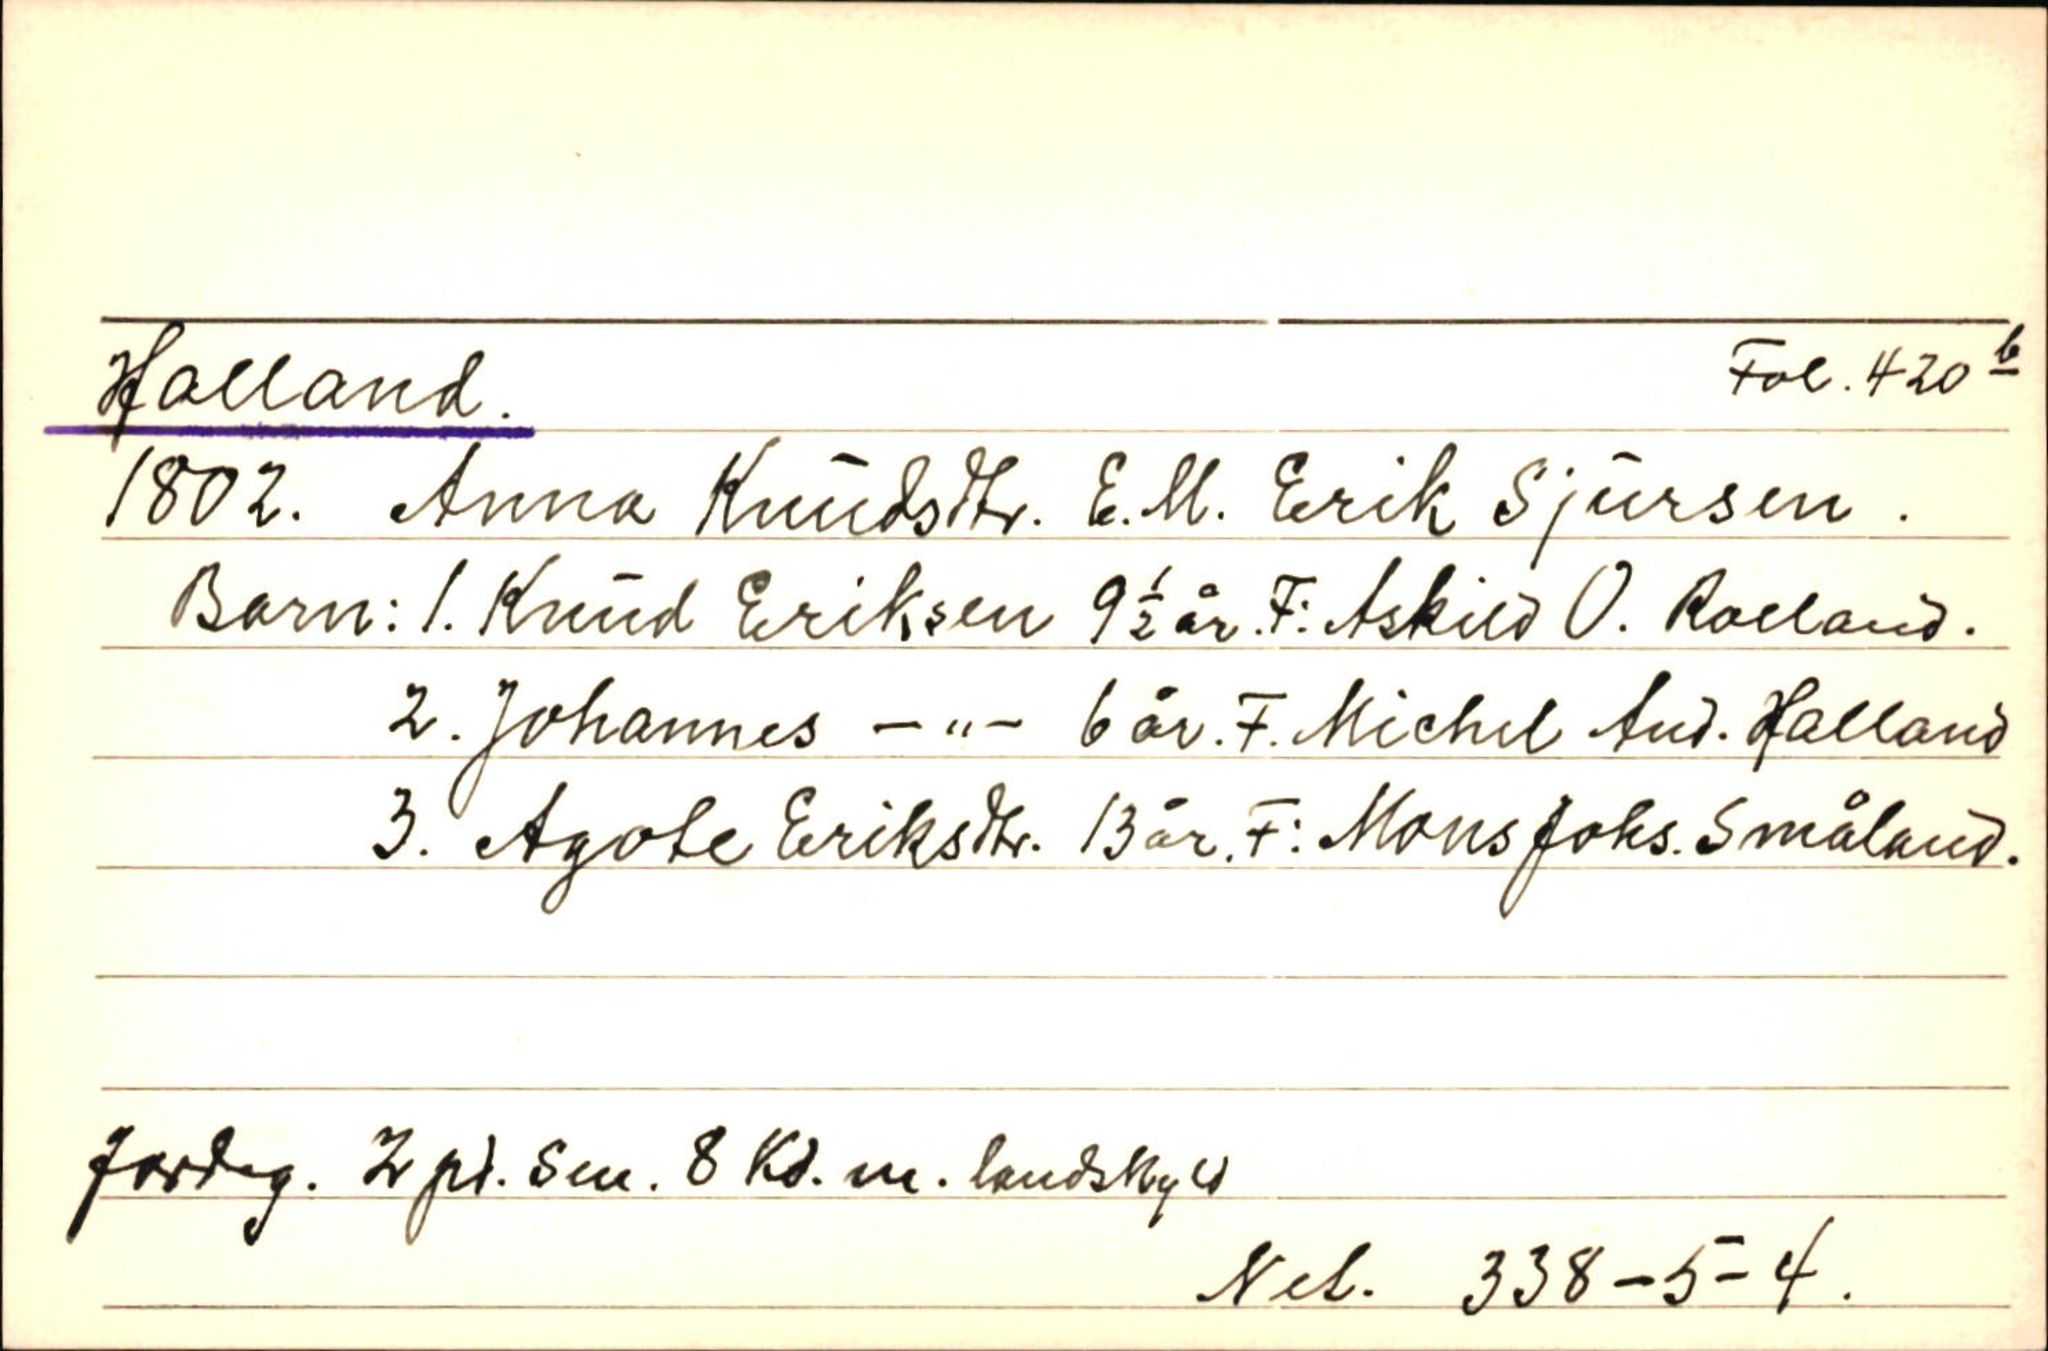 Halland. Fol. 420 b
1802. Anna Knudsdtr. E. M. Erik Sjursen.
Barn: 1. Knud Eriksen 9 1/2 år. F: Askild O. Rolland.
2. Johannes -"- 6 år. F. Michel And. Halland
3. Agote Eriksdtr. 13 år. F: Mons Johs. Småland.
Jordeg. 2 pd. Sm. 8 Kd. m. landskyld
Net. 338-5-4.